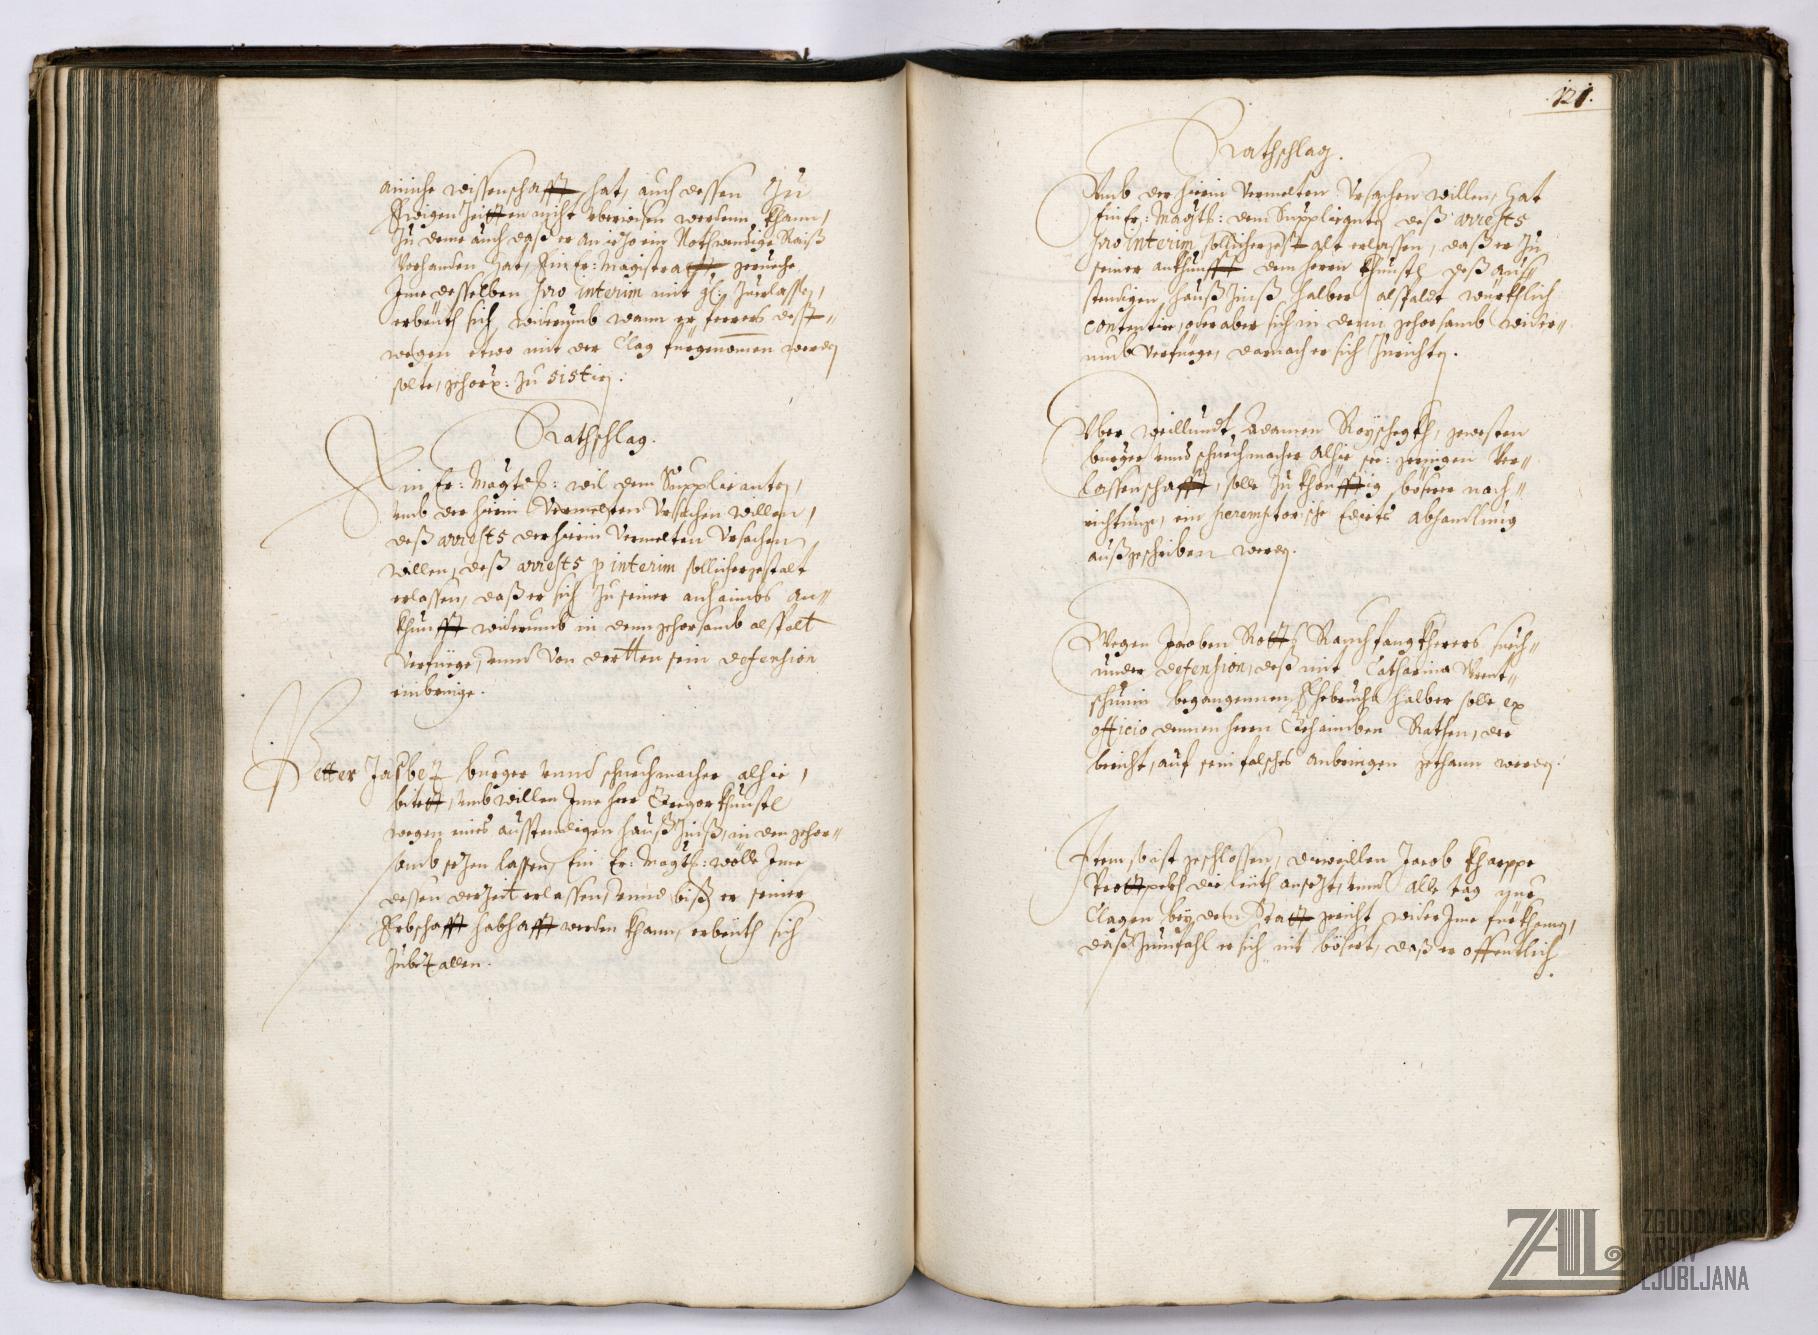 ainiche wissenschafft hat, auch dessen zu
Ewigen Zeitten nicht uberwisen werden khann,
Zu deme auch daß er an iezo ein Nothwendige Raiß
Vorhanden hat, Ein Er: Magistratt geruehe
Ime desselben pro interim mit gl: Zuerlassen,
erbeuth sich widerumb wann er ferrers desst¬
wegen etwo mit der Clag fürgenomen werden
solte, gehors: zu sistirn.
Rathschlag.
Ein Er: Magtß: wil dem Supplicanten,
umb der hierin Vermelten Ursachen willen,
deß arrests der hierin Vermelten Ursachen
willen, deß arrests p interim sollicher gestalt
erlassen, daß er sich zu seiner anhaimbs An¬
khunfft widerumb in dem gehorsamb alspalt
Verfüege, unnd Von dertten sein defension
einbringe.
Petter Jasbez burger unnd schuechmacher alhie,
bitett, umb willen Ime herr Gregor Khunstl
wegen eines ausstendigen hauß Zinß, in den gehor¬
samb sezen lassen, Ein Er: Magtß: wölle Ime
dessen der Zeit erlassen, unnd biß er seiner
Erbschafft habhafft werden khann, erbeuth sich
Zubezallen.
121.
Rathschlag.
Umb der hierin Vermelten Ursachen willen, hat
Ein Er: Magtß: dem Supplicanten deß arrests
pro interim sollicher gestalt erlassen, daß er zu
seiner ankhunfft dem herrn Khunstl deß aus¬
stendigen hauß Zinß halber alspaldt würkhlich
contentire, oder aber sich in denn gehorsamb wider¬
umb Verfüege, darnach er sich Zurichten.
Uber Weillundt Adamen gewesten
burger unnd schuechmacher alhie see: geringen Ver¬
lassenschafft, solle zu khonfftig bösserer nach¬
richtung, ein peremptorische Edicts abhandlung
außgeschriben werden.
Wegen Jacoben Rotts Rauchfangkherers such¬
under defension, deß mit Catharina
begangennen Ehebruchs halber solle ex
officio dennen herrn Gehaimben Räthen, der
bericht, auf sein falsches Anbringen gethann werden.
Item so ist geschlossen, dieweillen Jacob Kharppe
die leüth ansezt, unnd alle tag
Clagen bey dem Statt gericht wider Ime fürkhomen,
daß Zumfahl er sich nit bösert, daß er offentlich
ZGODOVINSKI
ARHIV
LJUBLJANA